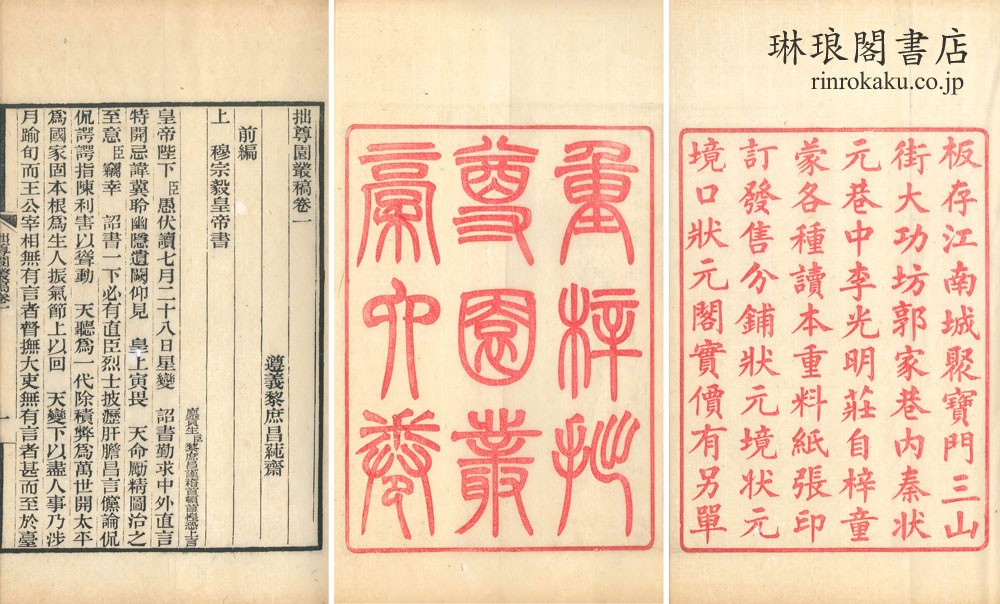 琳琅閣書店
rinrokaku.co.jp
板存江南城聚寶門三山
街大功坊郭家巷內秦狀
元巷中李光明莊自梓童
蒙各種讀本重料紙張印
訂發售分鋪狀元境狀元
境口狀元閣實價有另單
重梓拙
尊園叢
稾六卷
拙尊園叢稿卷一
遵義黎庶昌蒓齋
前編
上 穆宗毅皇帝書
廩貢生臣黎庶昌謹稽首頓首惶恐上言
皇帝陛下 臣愚伏讀七月二十八日星變 詔書勤求中外直言
特開忌諱冀聆幽隱遺闕仰見 皇上寅畏 天命勵精圖治之
至意臣竊幸 詔書一下必有直臣烈士披瀝肝膽昌言儻論侃
侃諤諤指陳利害以聳動 天聽爲一代除積弊爲萬世開太平
爲國家固本根爲生人振氣節上以回 天變下以盡人事乃涉
月踰旬而王公宰相無有言者督撫大吏無有言者甚而至於臺
拙尊園叢稿卷一
一